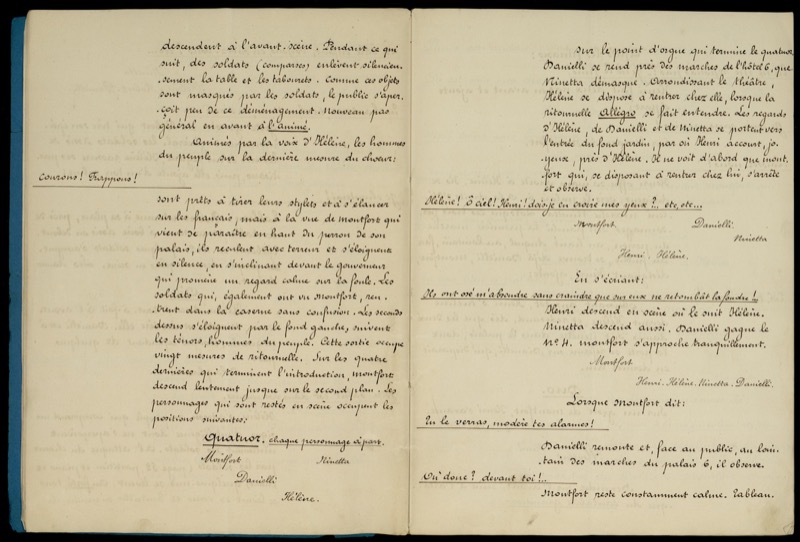 descendent à l'avant-scène. Pendant ce qui
suit, des soldats (comparses) enlèvent silencieu-
sement la table et les tabourets. Comme ces objets
sont masqués par les soldats, le public s'aper-
çoit peu de ce déménagement. Nouveau pas
général en avant à l'animé.
Animés par la voix d'Hélène, les hommes
du peuple sur la dernière mesure du chœur:
Courons! Frappons!
sont prêts à tirer leurs stylets et à s'élancer
sur les français, mais à la vue de Montfort qui
vient de paraître en haut du perron de son
palais, ils reculent avec terreur et s'éloignent
en silence, en s'inclinant devant le gouverneur
qui promène un regard calme sur la foule. Les
soldats qui, également ont vu Montfort, ren-
trent dans la caserne sans confusion. Les seconds
dessus s'éloignent par le fond gauche, suivent
les ténors, hommes du peuple. Cette sortie occupe
vingt mesures de ritournelle. Sur les quatre
dernières qui terminent l'introduction, Montfort
descend lentement jusque sur le second plan. Les
personnages qui sont restés en scène occupent les
positions suivantes:
Quatuor. chaque personnage à part.
Montfort Ninetta
Danielli
Hélène.
Sur le point d'orgue qui termine le quatuor
Danielli se rend près des marches de l'hôtel 6, que
Ninetta démasque. Arrondissant le théâtre,
Hélène se dispose à rentrer chez elle, lorsque la
ritournelle Allégro se fait entendre. Les regards
d'Hélène, de Danielli et de Ninetta se portent vers
l'entrée du fond jardin, par où Henri accourt, jo-
yeux, près d'Hélène. Il ne voit d'abord que Mont-
fort qui, se disposant à rentrer chez lui, s'arrête
et observe.
Hélène! Ô ciel! Henri! dois-je en croire mes yeux?.. etc, etc...
Montfort. Danielli.
Ninetta
Henri. Hélène.
En s'écriant:
Ils ont osé m'absoudre sans craindre que sur eux ne retombât la foudre!..
Henri descend en scène où le suit Hélène.
Ninetta descend aussi. Danielli gagne le
No. 4. Montfort s'approche tranquillement.
Montfort
Henri. Hélène. Ninetta. Danielli.
Lorsque Montfort dit:
Tu le verras, modère tes alarmes!
Danielli remonte et, face au public, au loin-
tain des marches du palais 6, il observe.
Où donc? devant toi!..
Montfort reste constamment calme. Tableau.